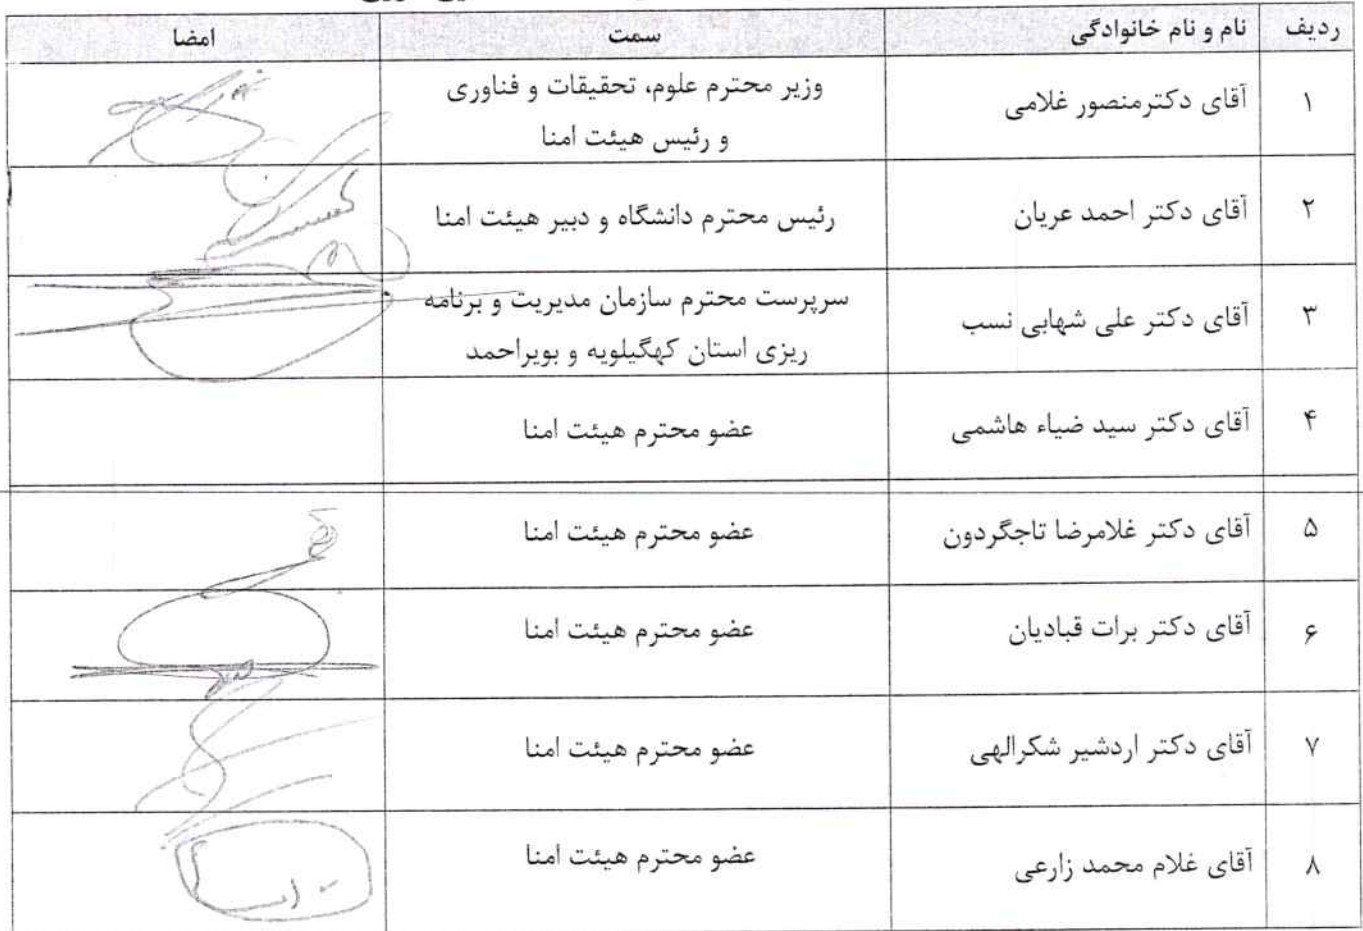 ردیف نام و نام خانوادگی سمت امضا
۱ آقای دکترمنصور غلامی وزیر محترم علوم، تحقیقات و فناوری
و رئیس هیئت امنا
۲ آقای دکتر احمد عریان رئیس محترم دانشگاه و دبیر هیئت امنا
۳ آقای دکتر علی شهابی نسب سرپرست محترم سازمان مدیریت و برنامه
ریزی استان کهگیلویه و بویراحمد
۴ آقای دکتر سید ضیاء هاشمی عضو محترم هیئت امنا
۵ آقای دکتر غلامرضا تاجگردون عضو محترم هیئت امنا
۶ آقای دکتر برات قبادیان عضو محترم هیئت امنا
۷ آقای دکتر اردشیر شکرالهی عضو محترم هیئت امنا
۸ آقای غلام محمد زارعی عضو محترم هیئت امنا